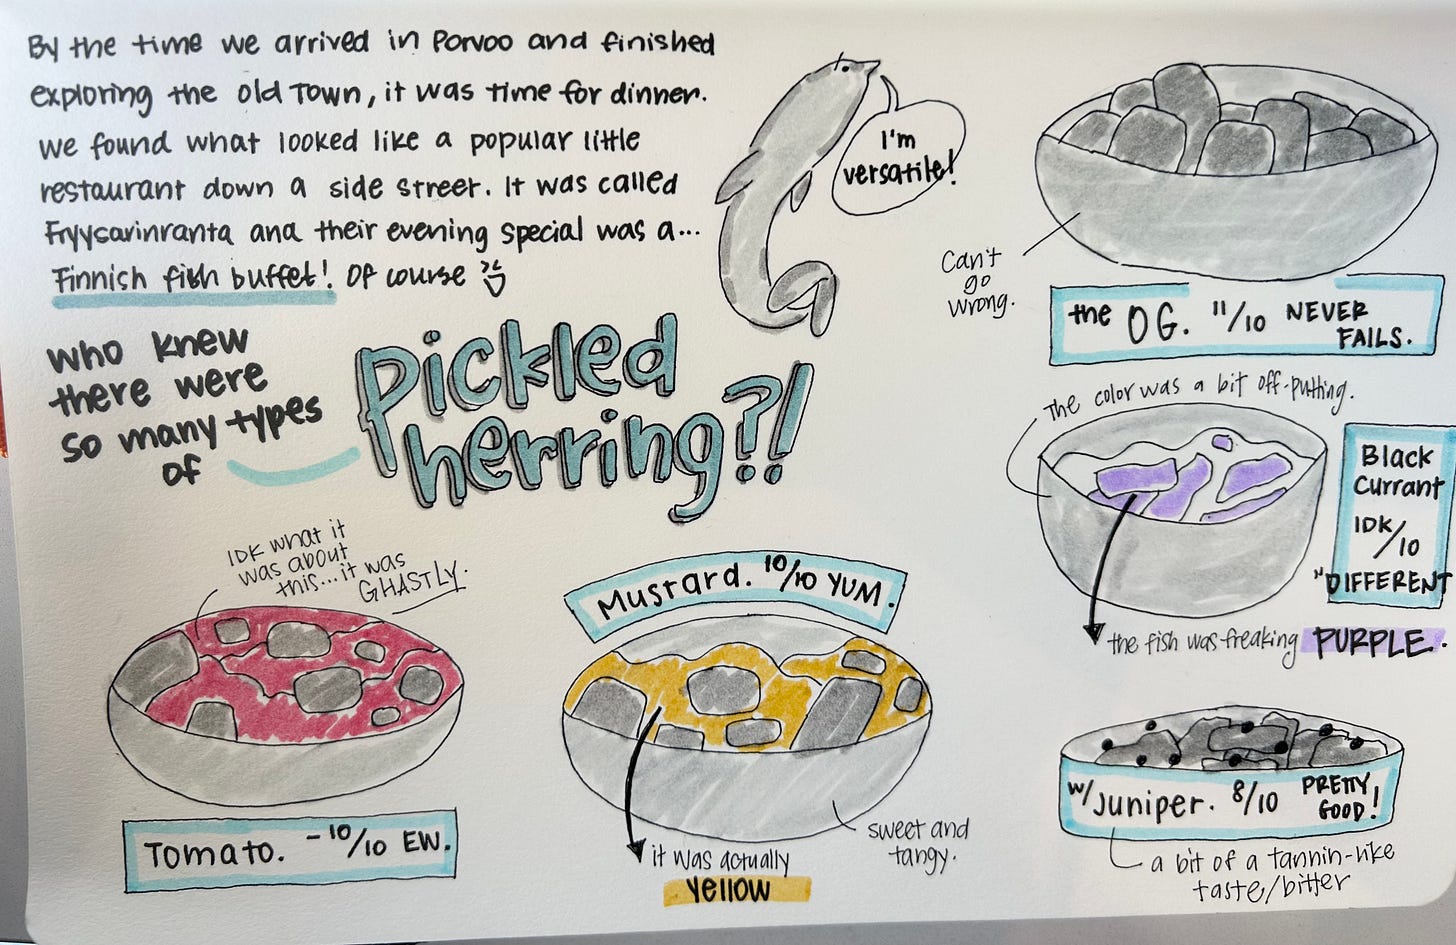 By the time we arrived in Porvoo and finished
exploring the old Town, it was time for dinner.
We found what looked like a popular little
restaurant down a side street. It was called
Fryysarinranta and their evening special was a...
Finnish fish buffet! Of course
who knew
there were
so many types
of
Pickled
herring?!
I'm
versatile!
Can't
go
wrong.
the OG. 11/10 NEVER
FAILS.
The color was a bit off-putting.
Black
Currant
IDK/10
"DIFFERENT
the fish was freaking PURPLE.
IDK what it
was about
this... it was
GHASTLY.
Tomato. -10/10 EW.
Mustard. 10/10 YUM.
it was actually
Yellow
sweet and
tangy.
w/ Juniper. 8/10 PRETTY
GOOD!
a bit of a tannin-like
taste/bitter